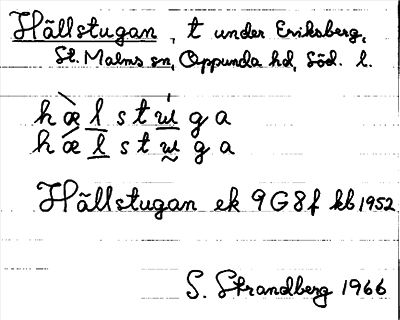 Hällstugan, t under Eriksberg,
St. Malms sn, Oppunda hd, Söd. l.
hælstwga
hælstwga
Hällstugan ek 9G8f kb 1952
S. Strandberg 1966